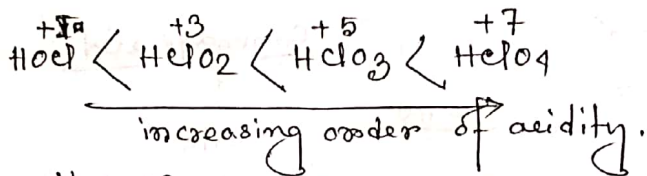 +1 +3 +5 +7
HOCl < HClO2 < HClO3 < HClO4
increasing order of acidity.